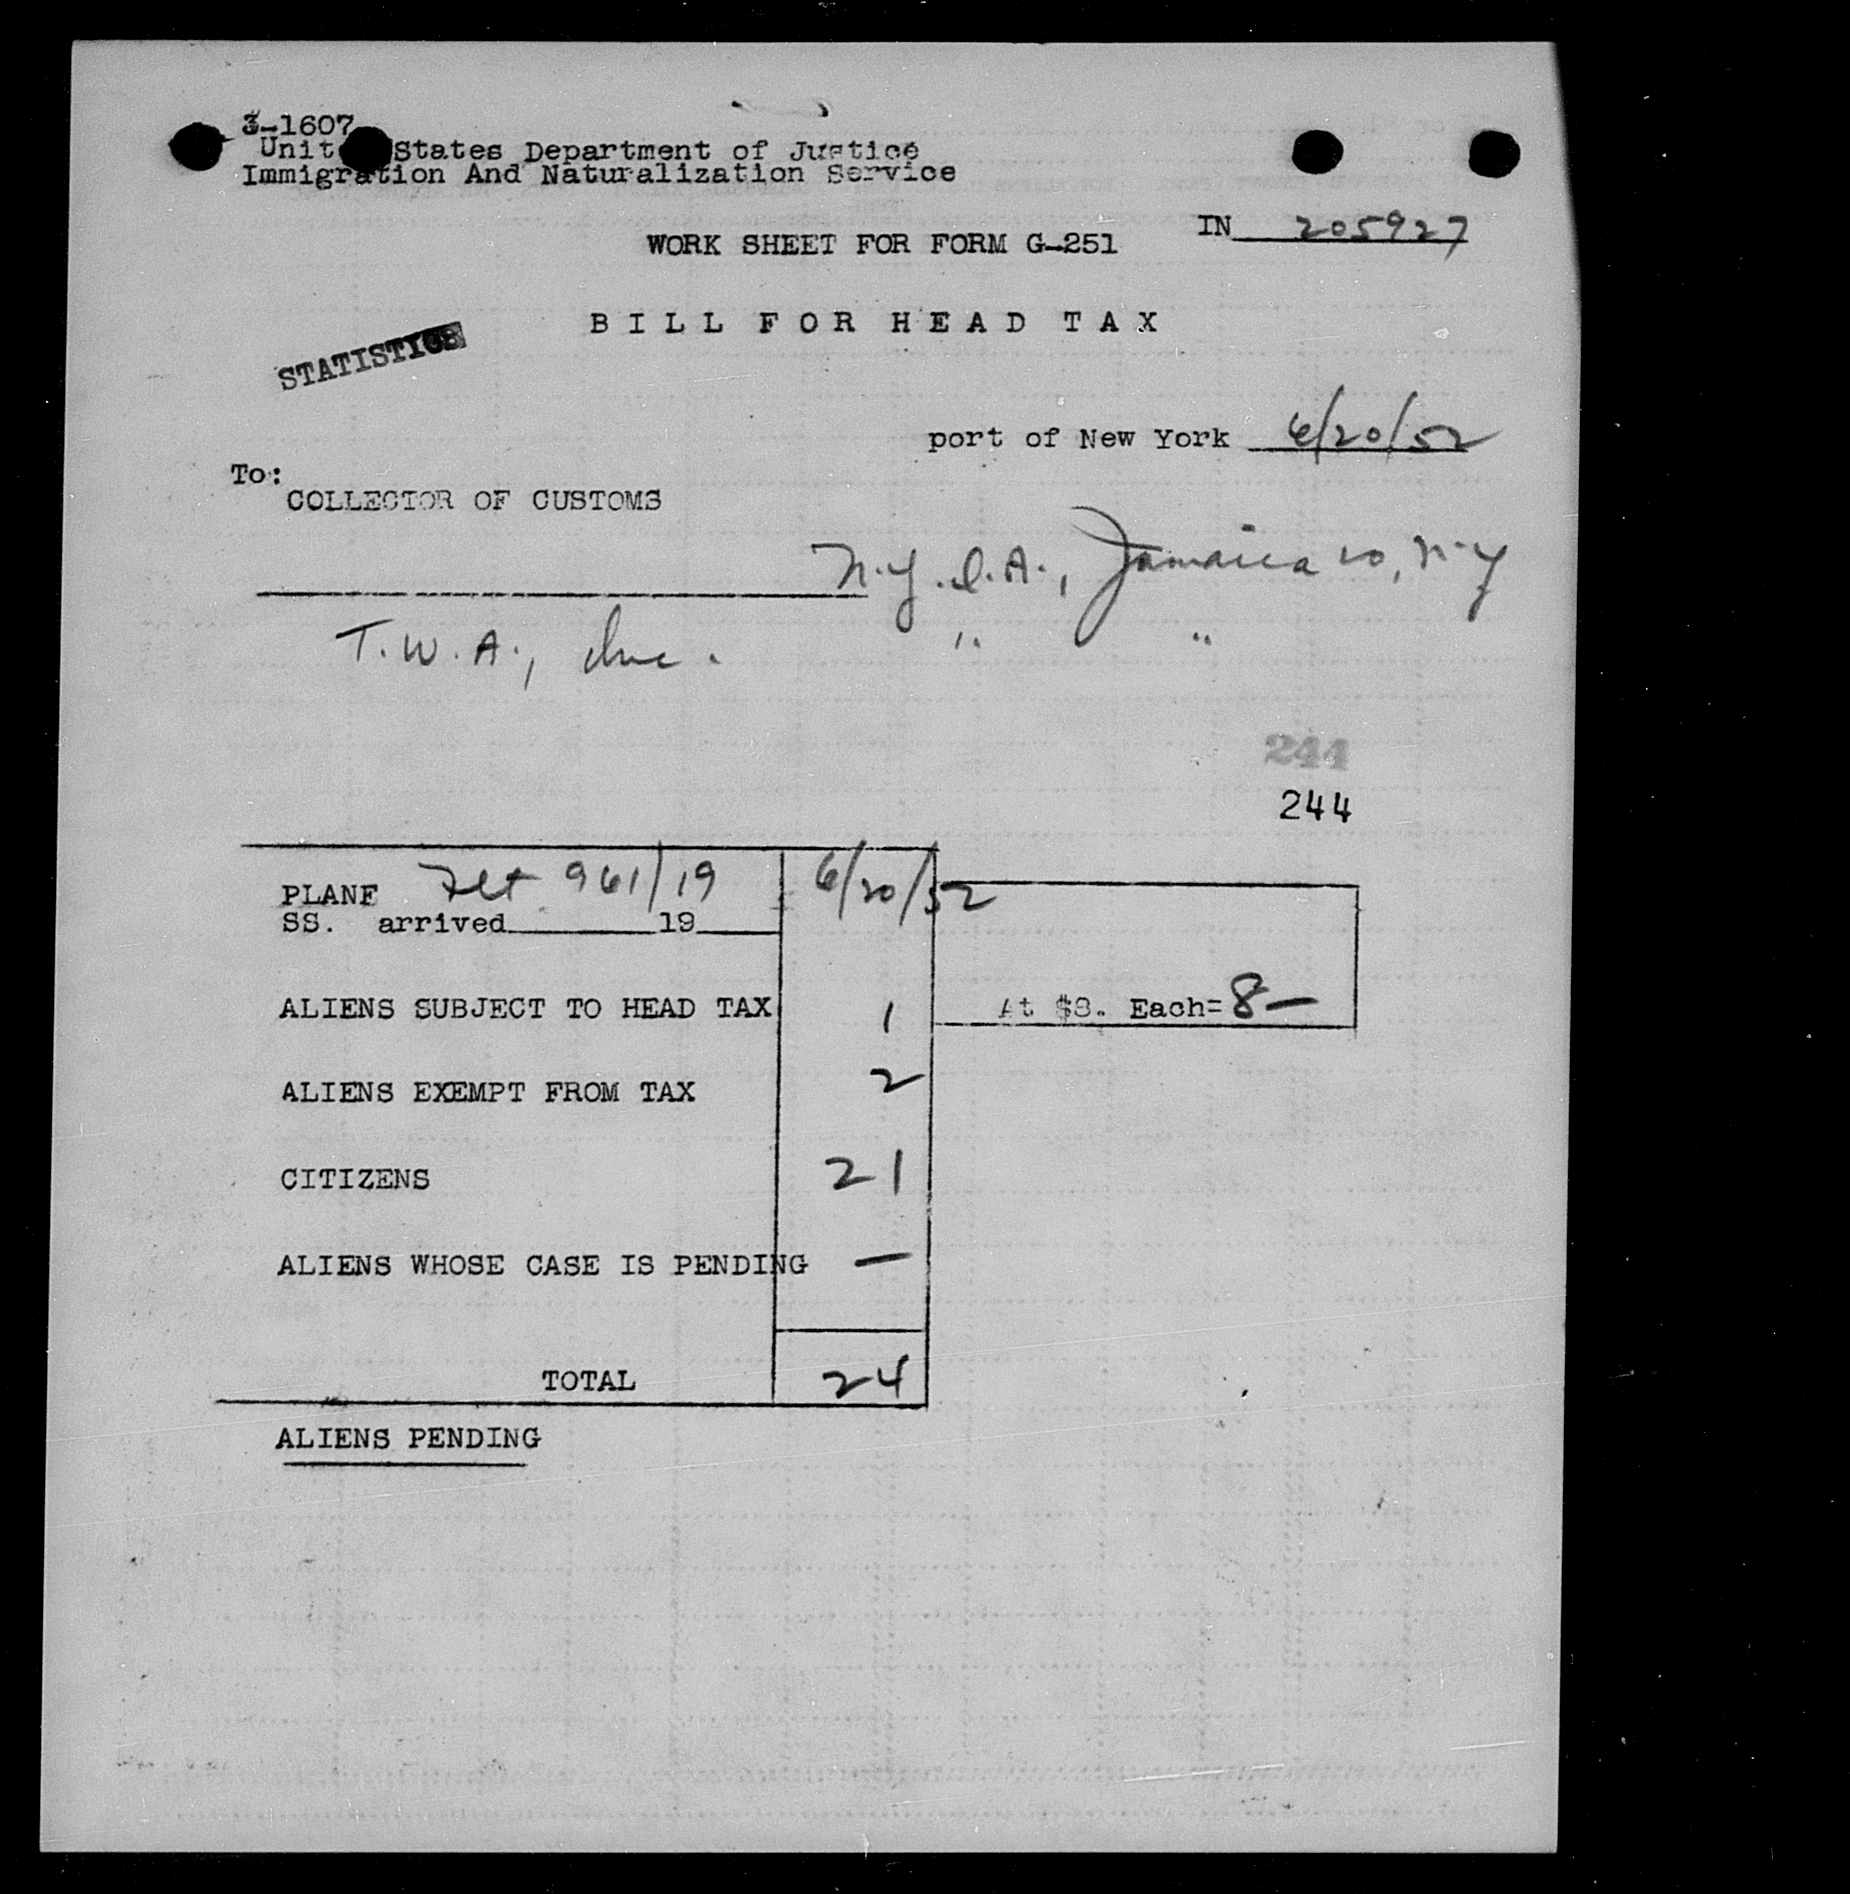 3-1607
United States Department of Justice
Immigration And Naturalization Service
IN 205927
WORK SHEET FOR FORM G-251
BILL FOR HEAD TAX
STATISTICS
port of New York 6/20/52
To:
COLLECTOR OF CUSTOMS
N.Y.I.A., Jamaica 20, N.Y
T.W.A., Inc. " "
244
244
PLANE Flt 961/19 6/20/52
SS. arrived 19
ALIENS SUBJECT TO HEAD TAX 1 At $8. Each= 8—
ALIENS EXEMPT FROM TAX 2
CITIZENS 21
ALIENS WHOSE CASE IS PENDING —
TOTAL 24
ALIENS PENDING